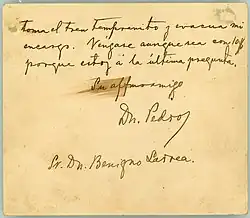 toma el tren tempranito y evacua mi
encargo. Vengase aunque sea con 10 $
porque estoy á la última pregunta.
Su affmo amigo
Dn. Pedro
Sr. Dn. Benigno Larrea.